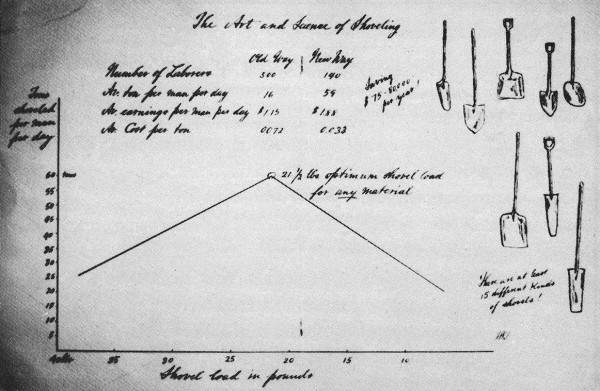 The Art and Science of Shoveling
Old Way New Way
Number of Laborers 500 140
Av. ton per man per day 16 59
Av. earnings per man per day $1.15 $1.88
Av. Cost per ton 0072 0.033
Saving
$75-80000
per year!
Tons
shoveled
per man
per day
60
21 1/2 lbs optimum shovel load
for any material
50
45
40
35
30
25
20
15
10
5
35 30 25 20 15 10
Shovel load in pounds
"There are at least
15 different kinds
of shovels!